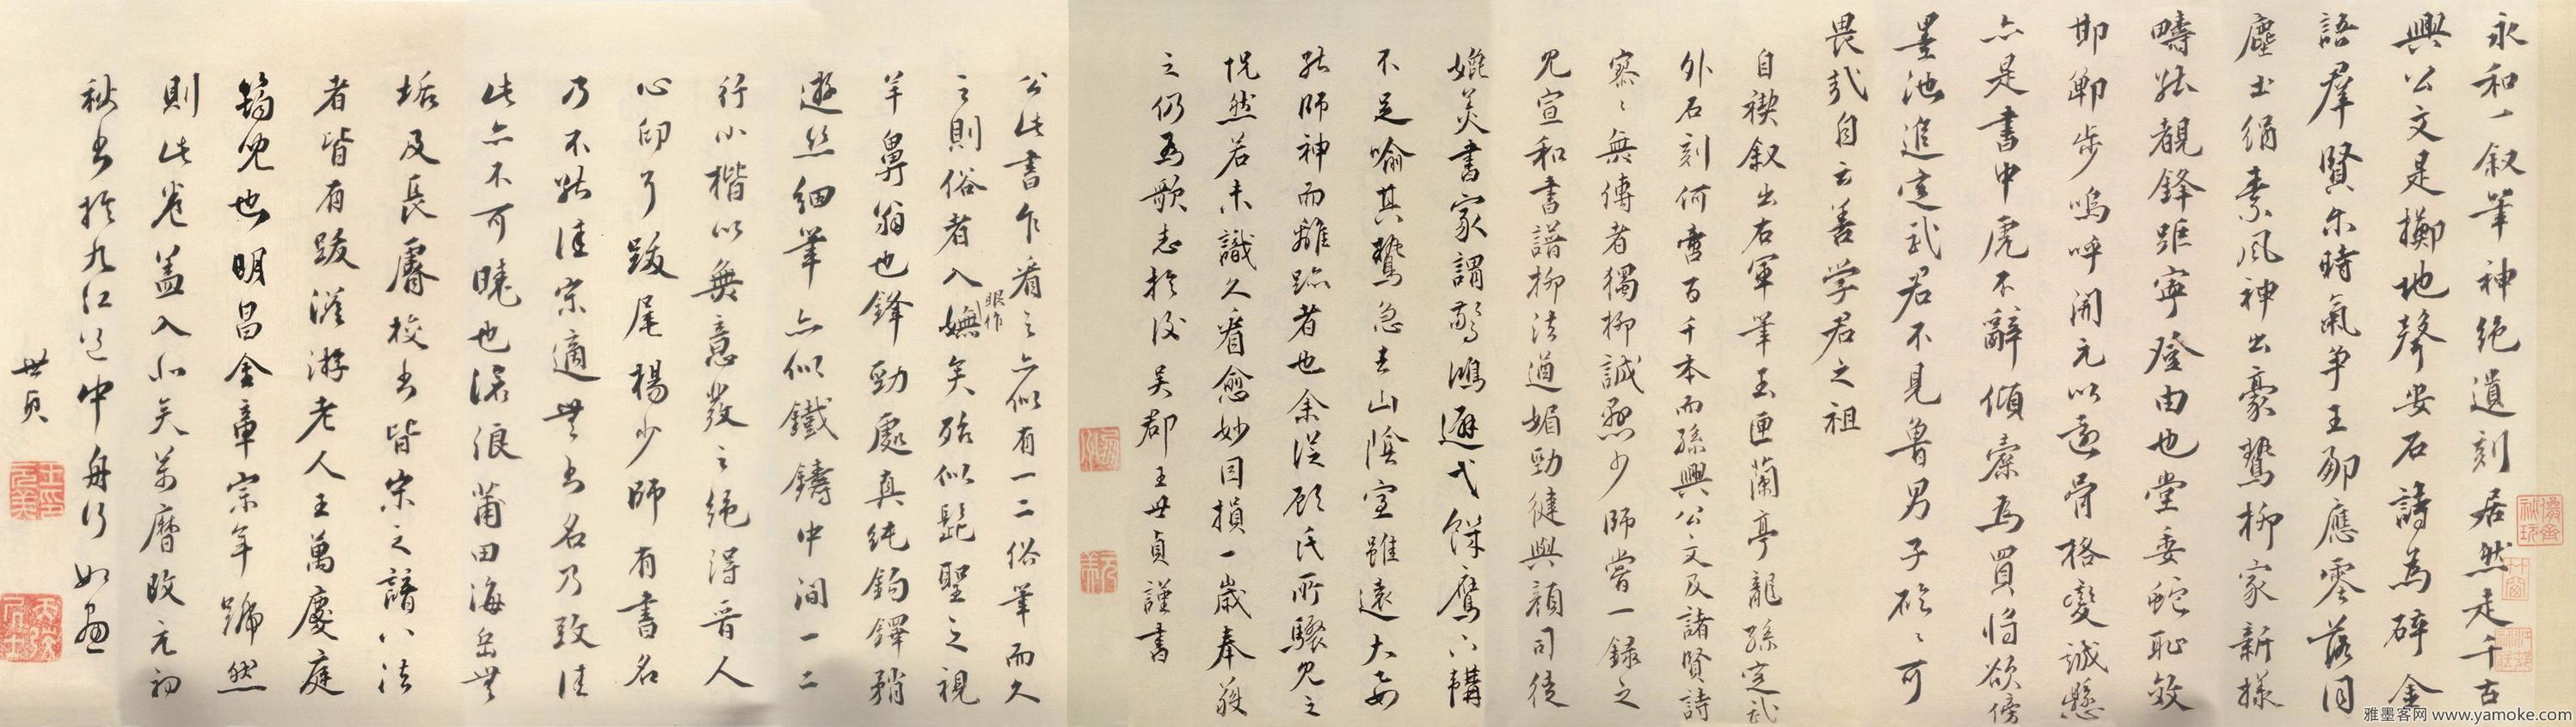 永和一叙筆神絶遺刻居然走千古
興公文是擲地聲安石詩為碎金
語羣賢尔時氣羊王郗應零落同
塵土絹素風神出豪鷙柳家新樣
疇能覩鋒距寧登由也堂委蛇耻效
邯鄲步嗚呼開元以還骨格變誠懸
亦是書中虎不辭傾橐為買將欲傍
墨池進定武君不見魯男子硜〻可
畏哉自云善学君之祖
自禊叙出右軍筆玉匣蘭亭龍孫定武
外石刻何啻百千本而孫興公文及諸賢詩
寥〻無傳者獨柳誠懸少師嘗一録之
見宣和書譜柳法遒媚勁健與顔司徒
媲美書家謂驚鴻避弋饑鷹下韝
不足喻其鷙急去山陰室雖遠大要
能師神而離跡者也余從顧氏所驟見之
怳然若未識久看愈妙因損一歲奉獲
之仍為歌志於後吴郡王世貞謹書
公此書乍看之亦似有一二俗筆而久
之則俗者入眼作嫵矣殆似髭聖之視
羊鼻翁也鋒勁處真純鉤鐸矟
遊絲細筆亦似鐵鑄中間一二
行小楷以無意發之絶得晋人
心印了跋尾楊少師有書名
乃不能佳宗適無書名乃致佳
此亦不可曉也滾浪莆田海岳無
垢及長睿校書皆宋之諳八法
者皆有跋溪游老人王萬慶庭
筠兒也明昌金章宗年號然
則此卷盖入北矣萬曆改元初
秋書於九江道中舟行如畫
世貞
雅墨客网 www.yamoke.com